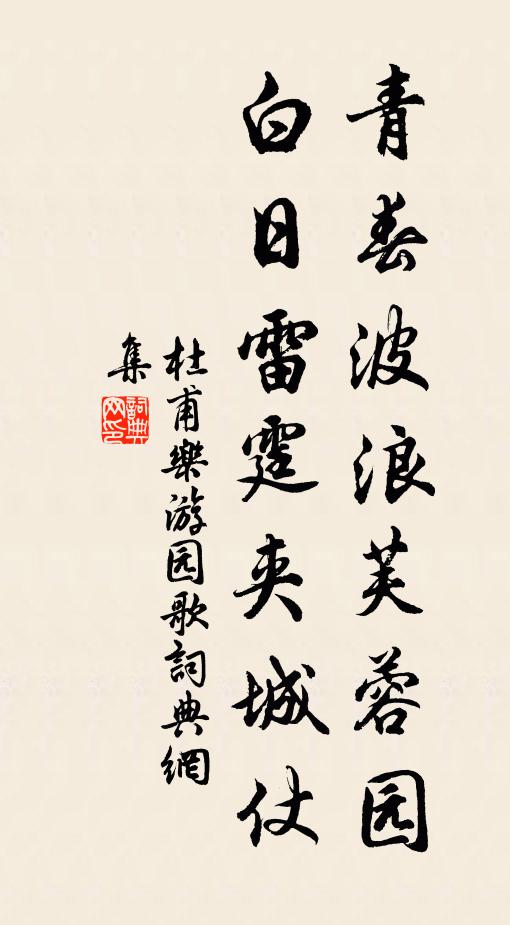 青春波浪芙蓉园
白日雷霆夹城仗
杜甫樂游园歌詞典網
集
詞典網印